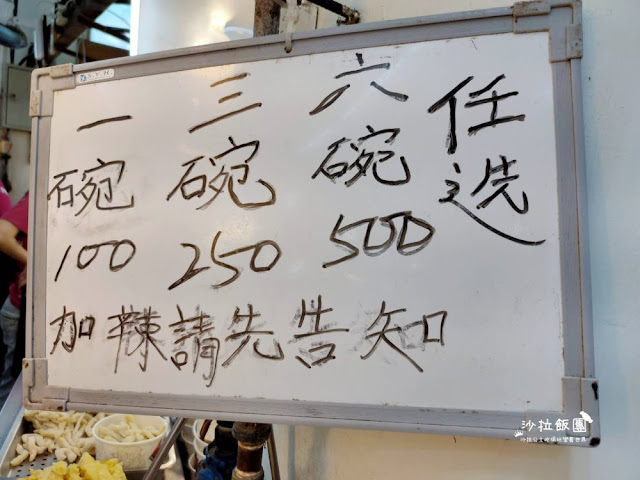 一碗 三碗 六碗 任選
100 250 500
加辣請先告知
沙拉飯團